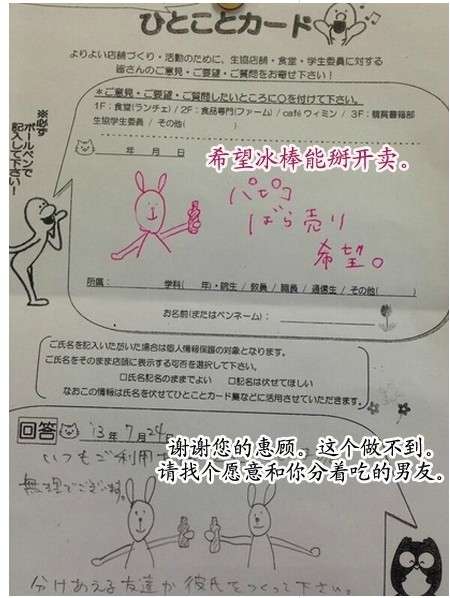 ひとことカード
よりよい店舗づくり・活動のために、生協店舗・食堂・学生委員に対する
皆さんのご意見・ご要望・ご質問をお寄せ下さい！
＊ご意見・ご要望・ご質問したいところに○を付けて下さい。
1F：食堂(ランチェ) / 2F：食品専門(ファーム) / caféウィミン / 3F：購買書籍部
生協学生委員 / その他(　　　)
※必ず
ボールペンで
記入して下さい！
年　月　日
希望冰棒能掰开卖。
パピコ
ばら売り
希望。
所属：　　学科(　年)・院生 / 教員 / 職員 / 通信生 / その他(　　　)
お名前(またはペンネーム)：
ご氏名を記入いただいた場合は個人情報保護の対象となります。
ご氏名をそのまま店頭に表示する可否を選択して下さい。
□氏名記名のままでよい　□記名は伏せてほしい
なおこの情報は氏名を伏せてひとことカード集などに活用させていただきます。
回答 '13年7月24
いつもご利用
谢谢您的惠顾。这个做不到。
無理でございます。
请找个愿意和你分着吃的男友。
分けあえる友達か彼氏をつくって下さい。